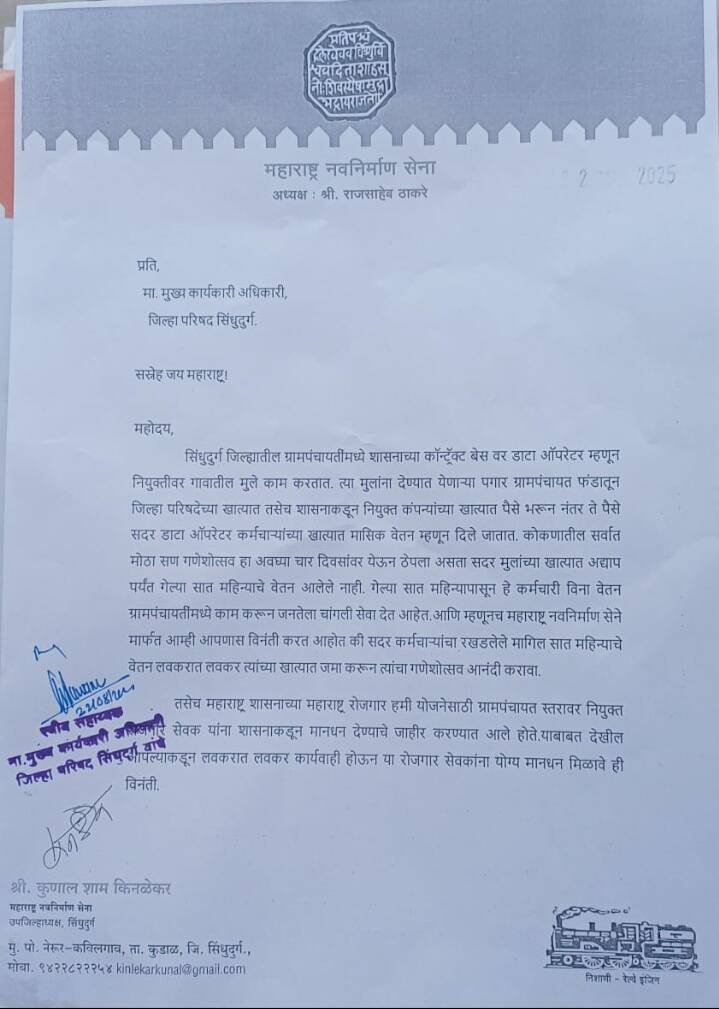 प्रतिपच्चं
द्रलेखेवव
महाराष्ट्र नवनिर्माण सेना
2 2025
अध्यक्ष : श्री. राजसाहेब ठाकरे
प्रति,
मा. मुख्य कार्यकारी अधिकारी,
जिल्हा परिषद सिंधुदुर्ग.
सस्नेह जय महाराष्ट्र!
महोदय,
सिंधुदुर्ग जिल्ह्यातील ग्रामपंचायतींमध्ये शासनाच्या कॉन्ट्रॅक्ट बेस वर डाटा ऑपरेटर म्हणून
नियुक्तीवर गावातील मुले काम करतात. त्या मुलांना देण्यात येणाऱ्या पगार ग्रामपंचायत फंडातून
जिल्हा परिषदेच्या खात्यात तसेच शासनाकडून नियुक्त कंपन्यांच्या खात्यात पैसे भरून नंतर ते पैसे
सदर डाटा ऑपरेटर कर्मचाऱ्यांच्या खात्यात मासिक वेतन म्हणून दिले जातात. कोकणातील सर्वात
मोठा सण गणेशोत्सव हा अवघ्या चार दिवसांवर येऊन ठेपला असता सदर मुलांच्या खात्यात अद्याप
पर्यंत गेल्या सात महिन्याचे वेतन आलेले नाही. गेल्या सात महिन्यापासून हे कर्मचारी विना वेतन
ग्रामपंचायतींमध्ये काम करून जनतेला चांगली सेवा देत आहेत.आणि म्हणूनच महाराष्ट्र नवनिर्माण सेने
मार्फत आम्ही आपणास विनंती करत आहोत की सदर कर्मचाऱ्यांचा रखडलेले मागिल सात महिन्याचे
वेतन लवकरात लवकर त्यांच्या खात्यात जमा करून त्यांचा गणेशोत्सव आनंदी करावा.
तसेच महाराष्ट्र शासनाच्या महाराष्ट्र रोजगार हमी योजनेसाठी ग्रामपंचायत स्तरावर नियुक्त
सेवक यांना शासनाकडून मानधन देण्याचे जाहीर करण्यात आले होते.याबाबत देखील
आपल्याकडून लवकरात लवकर कार्यवाही होऊन या रोजगार सेवकांना योग्य मानधन मिळावे ही
विनंती.
22/08/2025
स्वीय सहाय्यक
मा.मुख्य कार्यकारी अधिकारी
जिल्हा परिषद सिंधुदुर्ग यांचे
श्री. कुणाल शाम किनळेकर
महाराष्ट्र नवनिर्माण सेना
उपजिल्हाध्यक्ष, सिंधुदुर्ग
मु. पो. नेरूर-कविलगाव, ता. कुडाळ, जि. सिंधुदुर्ग.,
मोबा. ९४२२८२२२५४ kinlekarkunal@gmail.com
निशाणी - रेल्वे इंजिन